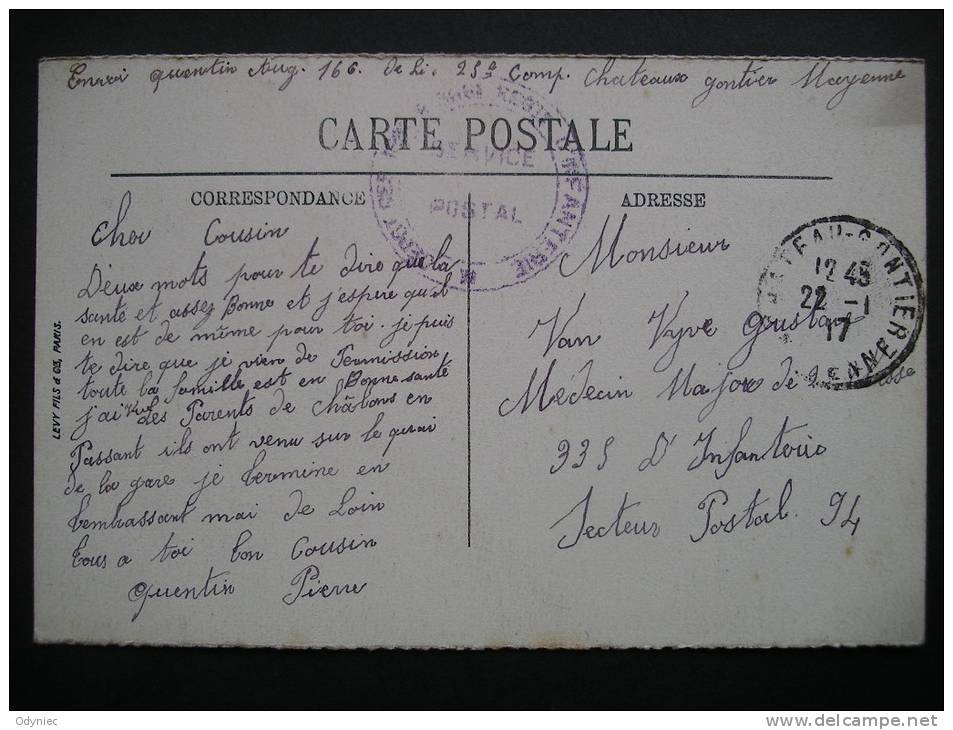 Envoi Quentin Aug. 166. de Li. 25e Comp. Chateaux gontier Mayenne
CARTE POSTALE
SERVICE
POSTAL
INFANTERIE
CORRESPONDANCE
ADRESSE
Cher Cousin
Deux mots pour te dire que la
santé et assez Bonne et j'espere qu'il
en est de même pour toi. je puis
te dire que je vien de Permission
toute la famille est en Bonne santé
j'ai vut des Parents de Châlons en
Passant ils ont venu sur le quai
de la gare je termine en
t'embrassant mai de Loin
tous a toi ton Cousin
Quentin Pierre
Monsieur
Van Vyve Gustave
Médecin Major de 2e classe
335 D'Infanterie
Secteur Postal. 94
CHATEAU-GONTIER
12 45
22 -1
17
MAYENNE
LEVY FILS & Cie, PARIS.
Odyniec
delcampe.net